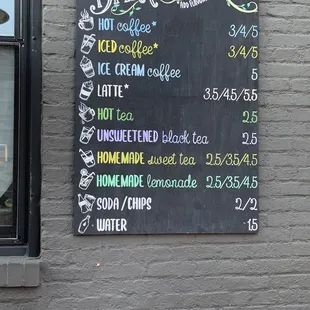 HOT coffee* 3/4/5
ICED coffee* 3/4/5
ICE CREAM coffee 5
LATTE* 3.5/4.5/5.5
HOT tea 2.5
UNSWEETENED black tea 2.5
HOMEMADE sweet tea 2.5/3.5/4.5
HOMEMADE lemonade 2.5/3.5/4.5
SODA/CHIPS 2/2
WATER 1.5